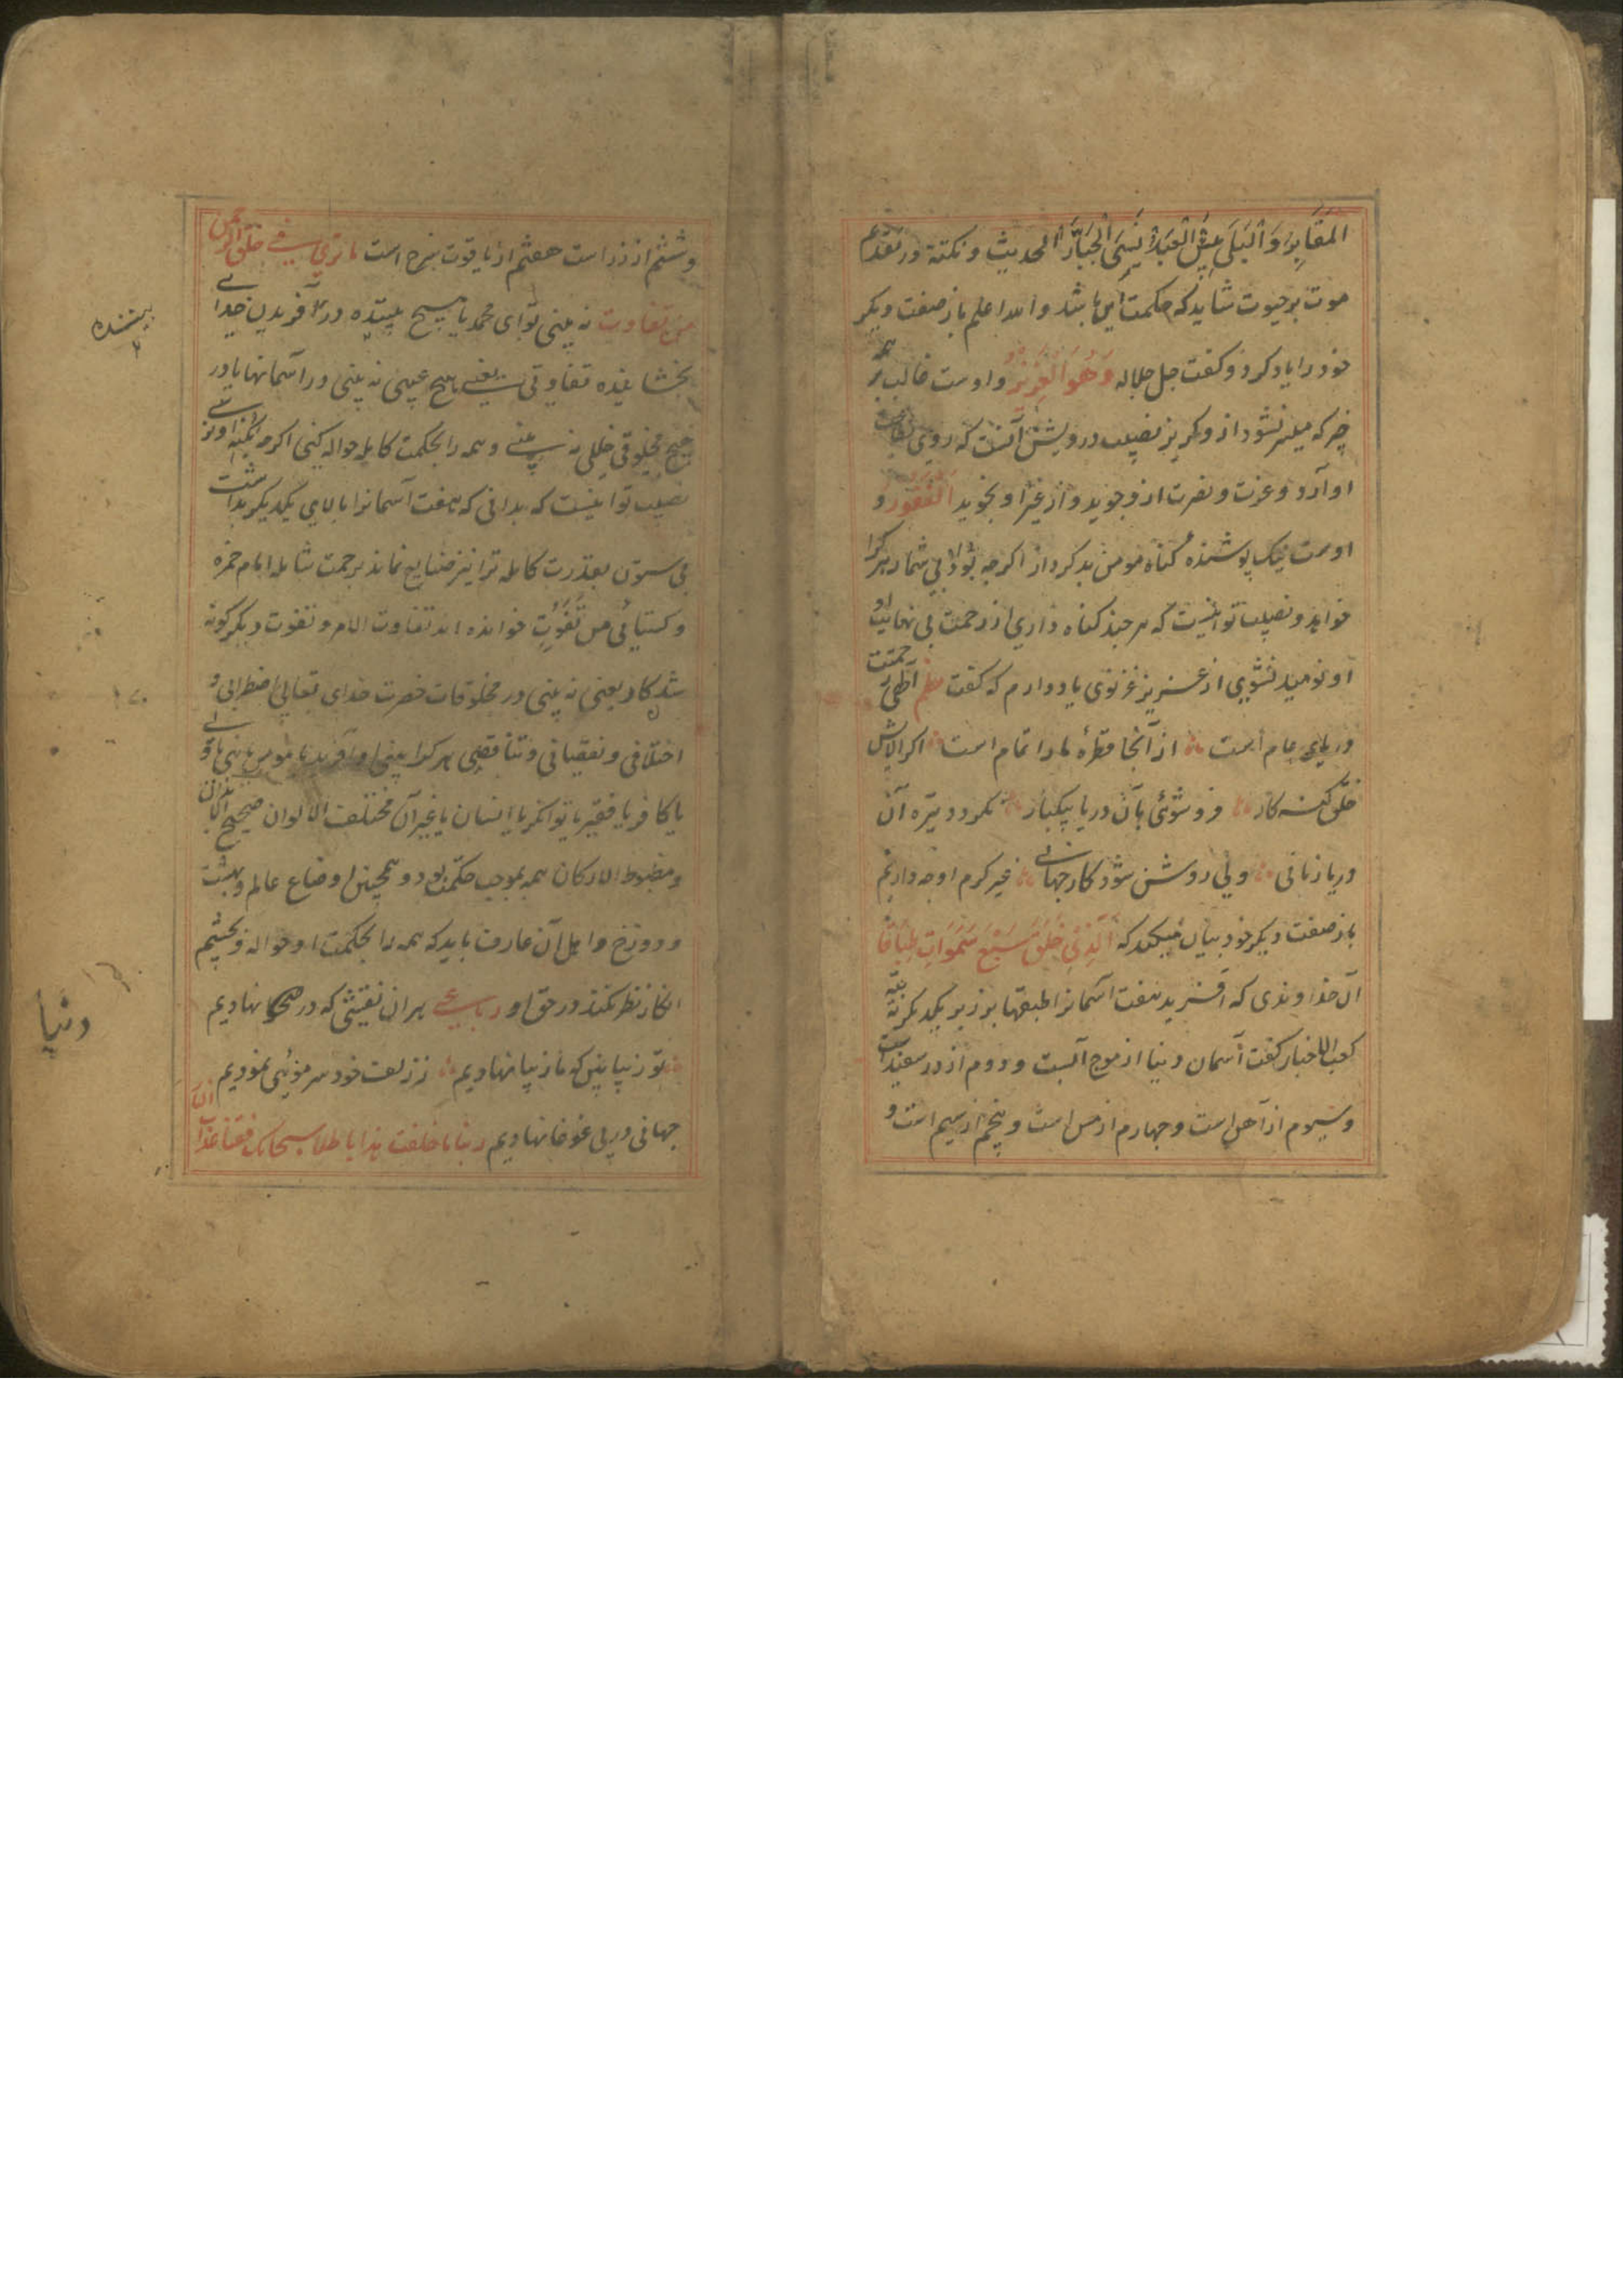 المَقَابِرَ وَ الْبَلَى بِئْسَ الْعَبْدُ يَنْسَى الْجَبَّارَ الحدیث و نکته در تقدیم
موت بر حیوت شاید که حکمت این باشد والله اعلم باز صفت دیگر
خود را یاد کرد و گفت جل جلاله وَهُوَ الْعَزِیْزُ و اوست غالب بر همه
چیز که میسر نشود از و گریز نصیب درویش آنست که روی
او آرد و عزت و نصرت از و جوید و از غیر او نجوید الْغَفُورُ و
اوست نیک پوشنده گناه مومن بد کردار اگرچه بود بی شمار هر کرا
خواهد و نصیب تو اینست که هر چند گناه داری از رحمت بی نهایت او
او نومید نشوی از عزیز غزنوی یاد دارم که گفت نظم الٰهی رحمتت
دریای عام است از آنجا قطرهٔ ما را تمام است اگر آلایش
خلق گنه کار فرو شوئی بآن دریا بیکبار نگردد تیره آن
دریا زمانی ولی روشن شود کار جهانی غیر کرم او چه داریم
باز صفت دیگر خود بیان میکند که الَّذِیْ خَلَقَ سَبْعَ سَمٰوَاتٍ طِبَاقًا
آن خداوندی که آفرید هفت آسمانرا طبقها بر زبر یکدیگر
کعب الاخبار گفت آسمان دنیا از موج آبست و دوم از در سفید است
و سیوم از آهن است و چهارم از مس است و پنجم از سیم است و
و ششم از زر است هفتم از یاقوت سرخ است ما تری فی خلق الرحمن
من تفاوت نه بینی تو ای محمد یا هیچ بیننده در آفریدن خدای
بخشاینده تفاوتی یعنی هیچ عیبی نه بینی در آسمانها یا در
هیچ مخلوقی خللی نه بینی و همه را بحکمت کامله حواله کنی اگرچه
نصیب تو اینست که بدانی که هفت آسمانرا بالای یکدیگر بداشت
بی ستون بقدرت کامله ترا نیز ضایع نماند برحمت شامله امام حمزه
و کسائی من تَفَوُّتٍ خوانده اند تفاوت الامر و تفوت دیگر گونه
شد کار یعنی نه بینی در مخلوقات حضرت خدای تعالیٰ اضطرابی و
اختلافی و نقصانی و تناقضی هر کرا بینی
یا کافر یا فقیر یا توانگر یا انسان یا غیر آن مختلف الالوان صحیح
و مضبوط الارکان همه بموجب حکمت بود و همچنین اوضاع عالم و بهشت
و دوزخ و اهل آن عارف باید که همه را بحکمت او حواله و بچشم
انکار نظر نکند در حق او رباعی بر ان نقشی که در صحرا نهادیم
تو زیبا بین که ما زیبا نهادیم ز زلف خود سر موئی نمودیم
جهانی در پی غوغا نهادیم ربنا ما خلقت هذا باطلا سبحانک فقنا عذاب النار
بیننده
دنیا